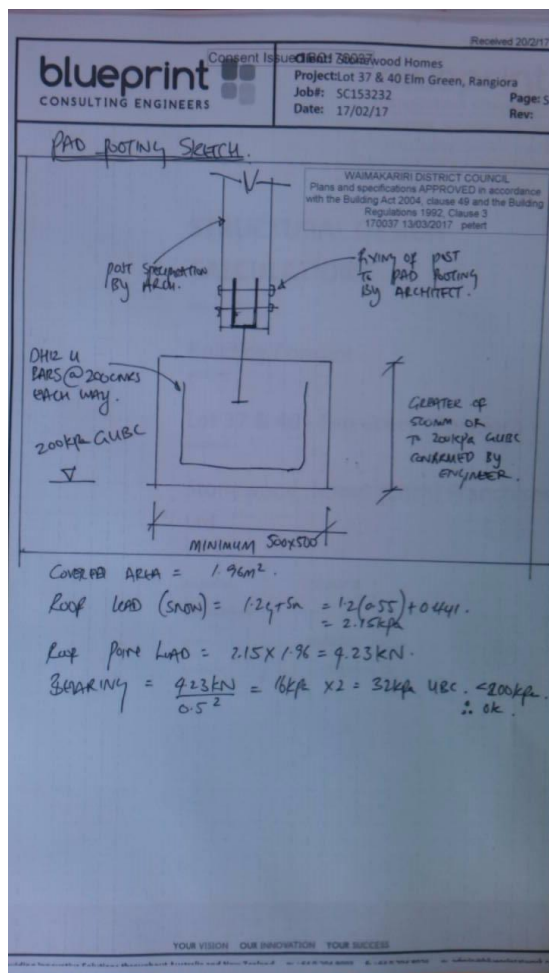 Received 20/2/17
blueprint
CONSULTING ENGINEERS
Consent Issued BC170037
Client: Stonewood Homes
Project: Lot 37 & 40 Elm Green, Rangiora
Job#: SC153232
Page: 5
Date: 17/02/17
Rev:
PAD FOOTING SKETCH.
WAIMAKARIRI DISTRICT COUNCIL
Plans and specifications APPROVED in accordance
with the Building Act 2004, clause 49 and the Building
Regulations 1992, Clause 3
170037 13/03/2017 petert
POST SPECIFICATION
BY ARCH.
FIXING OF POST
TO PAD FOOTING
BY ARCHITECT.
DH12 U
BARS @ 200CNRS
EACH WAY.
200kPa GUBC
GREATER OF
500MM OR
TO 200kPa GUBC
CONFIRMED BY
ENGINEER.
MINIMUM 500x500
COVERED AREA = 1.96m².
ROOF LOAD (SNOW) = 1.2G+Sn = 1.2(0.55)+0.441.
= 2.15kPa
ROOF POINT LOAD = 2.15 x 1.96 = 4.23KN.
BEARING = 4.23KN / 0.5² = 16kPa x2 = 32kPa UBC. <200kPa.
∴ OK.
YOUR VISION OUR INNOVATION YOUR SUCCESS